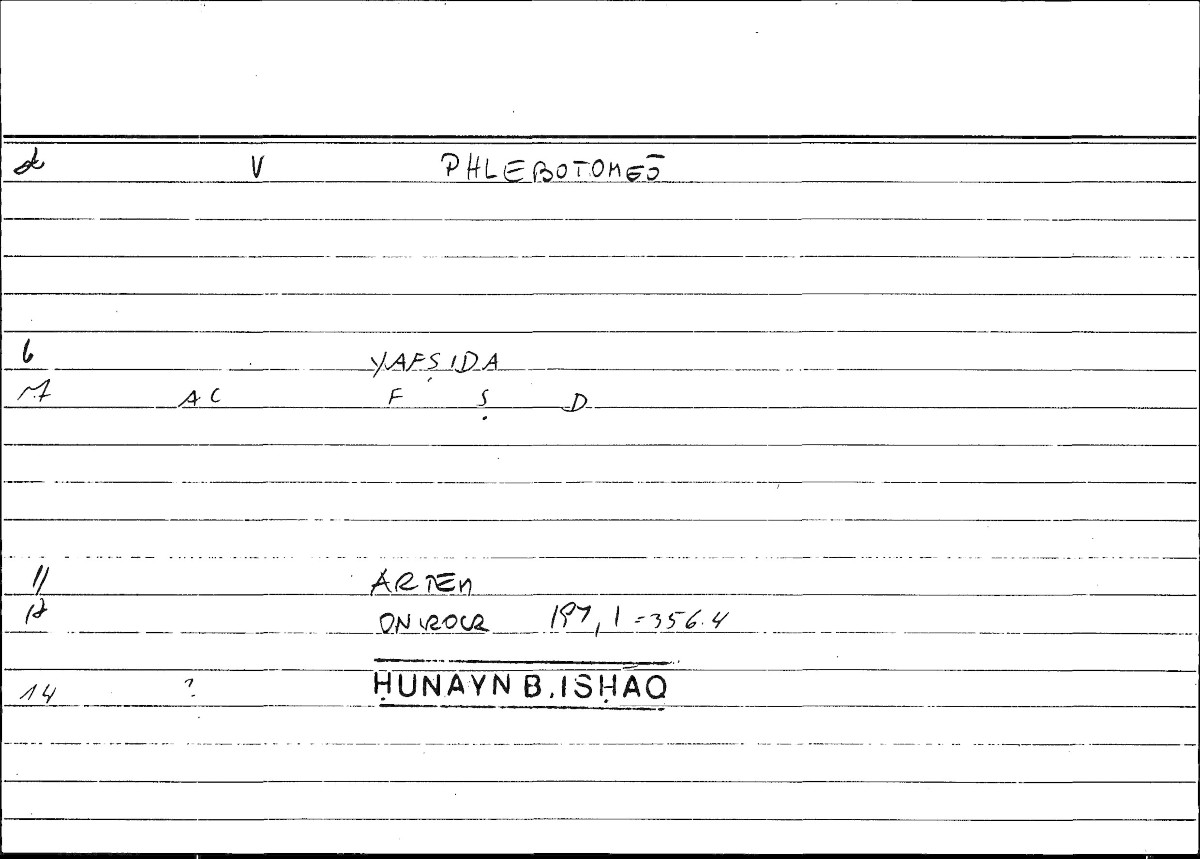 V PHLEBOTOMEŌ
6 YAFṢIDA
AC F Ṣ D
11 ARTEM
12 ONIROCR 197,1=356.4
14 ? ḤUNAYN B. ISḤĀQ